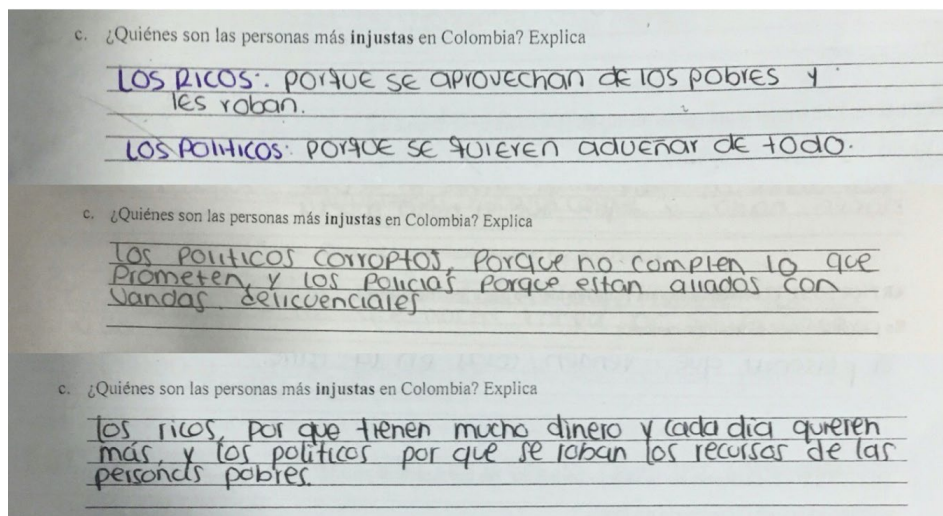 c. ¿Quiénes son las personas más injustas en Colombia? Explica
LOS RICOS: PORQUE SE APROVECHAN DE LOS POBRES Y
les roban.
LOS POLITICOS: PORQUE SE QUIEREN ADUEÑAR DE TODO.
c. ¿Quiénes son las personas más injustas en Colombia? Explica
Los politicos corroptos, Porque no complen lo que
Prometen, y los Policias porque estan aliados con
Vandas delicuenciales
c. ¿Quiénes son las personas más injustas en Colombia? Explica
los ricos, por que tienen mucho dinero y cada dia quieren
más, y los politicos por que se roban los recursos de las
personas pobres.